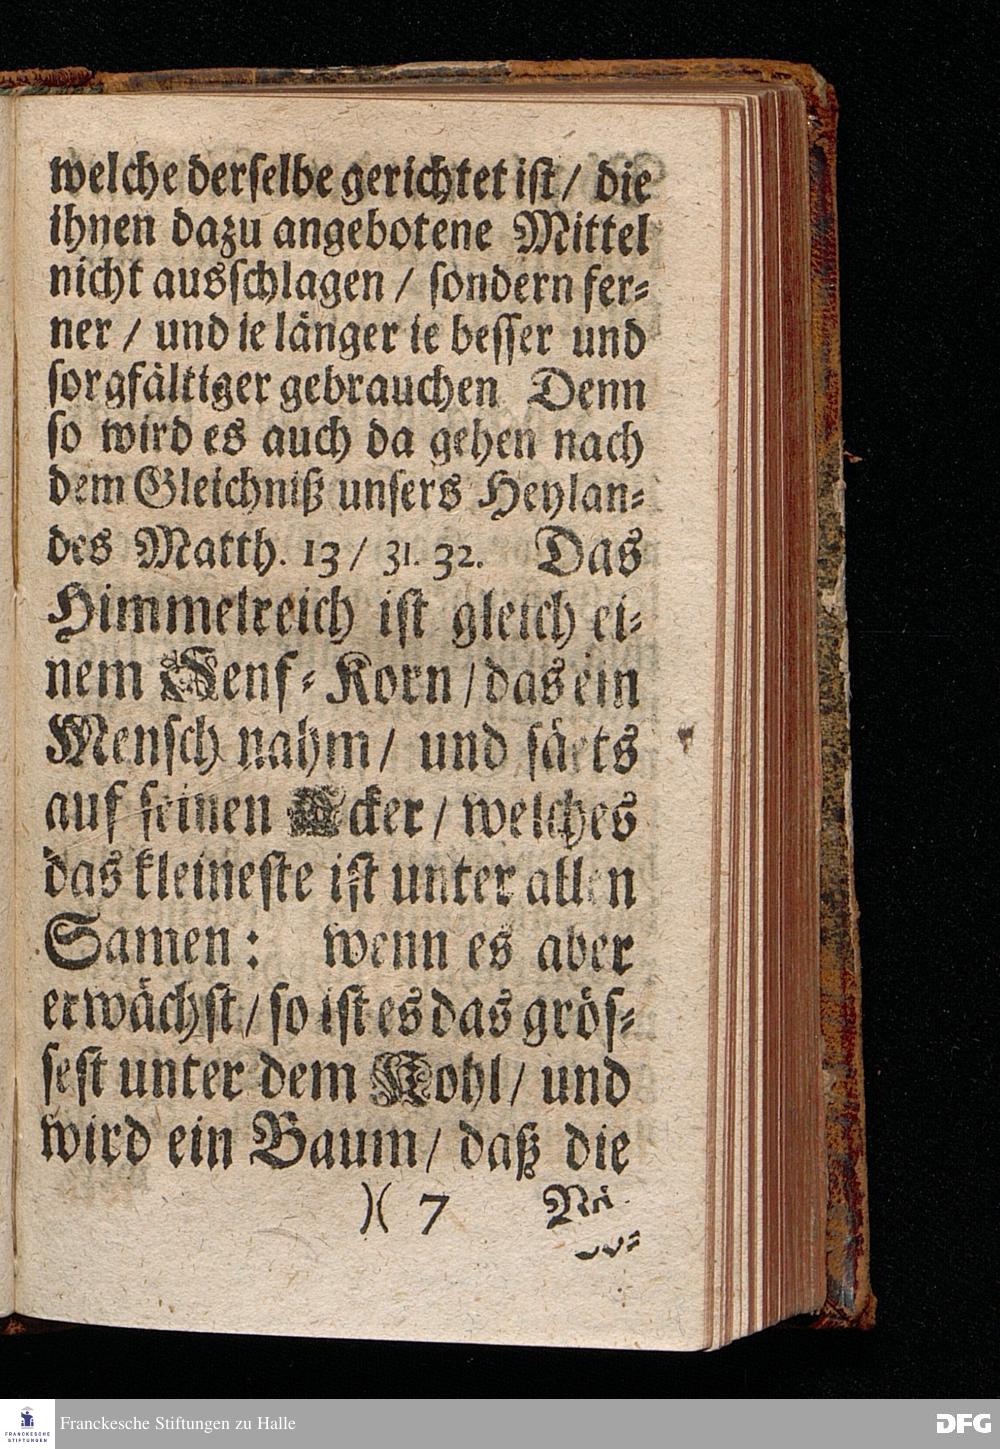 welche derselbe gerichtet ist / die
ihnen dazu angebotene Mittel
nicht ausschlagen / sondern fer-
ner / und ie länger ie besser und
sorgfältiger gebrauchen Denn
so wird es auch da gehen nach
dem Gleichniß unsers Heylan-
des Matth. 13 / 31. 32. Das
Himmelreich ist gleich ei-
nem Senf-Korn / das ein
Mensch nahm / und säets
auf seinen Acker / welches
das kleineste ist unter allen
Samen: wenn es aber
erwächst / so ist es das grös-
sest unter dem Kohl / und
wird ein Baum / daß die
)( 7
FRANCKESCHE STIFTUNGEN
Franckesche Stiftungen zu Halle
DFG